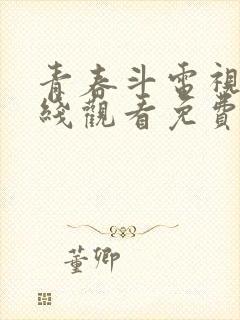 青春斗電視
綫觀看免費
董卿